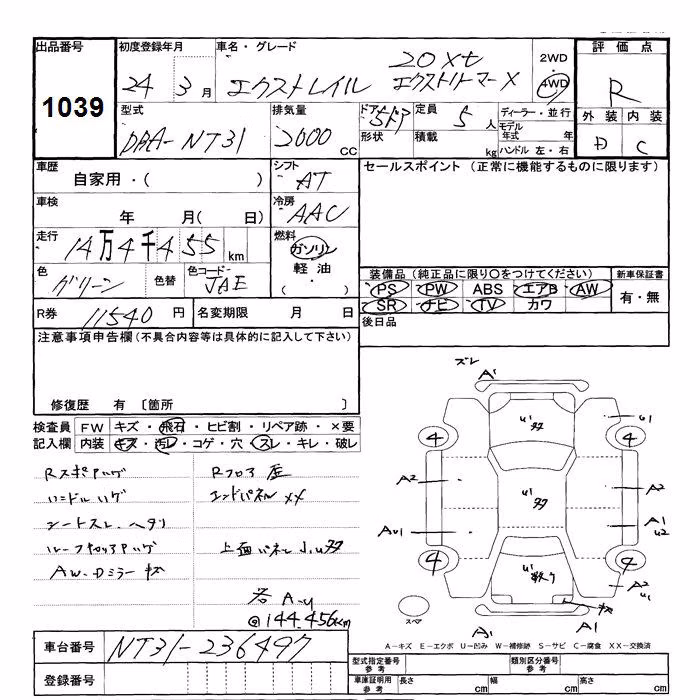 出品番号 初度登録年月 車名・グレード 評価点
1039
24年 3月 エクストレイル 20Xtt エクストリーマーX 2WD・4WD R
型式 排気量 ドア形状 定員 ディーラー・並行 外装 内装
DBA-NT31 2000cc 5ドア 5人 モデル年式 年 D C
積載 kg ハンドル 左・右
車歴 シフト セールスポイント (正常に機能するものに限ります)
自家用・( ) AT
車検 冷房
年 月( 日) AAC
走行 燃料
14万4千455km ガソリン
軽油
色 色替 色コード
グリーン JAE
装備品 (純正品に限り○をつけてください) 新車保証書
PS PW ABS エアB AW 有・無
SR ナビ TV カワ
R券 11540円 名変期限 月 日
後日品
注意事項申告欄(不具合内容等は具体的に記入して下さい)
修復歴 有 〔箇所 〕
検査員 FW キズ・飛石・ヒビ割・リペア跡・×要
記入欄 内装 キズ・汚レ・コゲ・穴・スレ・キレ・破レ
Rスポアハゲ
ハンドルハゲ
シートスレ・ヘタリ
ルーフキャリアハゲ
AW・Dミラーキズ
Rフロア歪
エンドパネルXX
上面パネル小U多
各A-U
@144,456km
ズレ
A1
U1 多
U1
4 4
A2 A2
U1 多
AU1 A1 U2
4 4
U1 数ケ
A2 U1
キズ
スペア
A1 A1
A-キズ E-エクボ U-凹み W-補修跡 S-サビ C-腐食 XX-交換済
車台番号 NT31-236497
登録番号
型式指定番号 参考 類別区分番号 参考
車庫証明用 参考 長さ cm 幅 cm 高さ cm